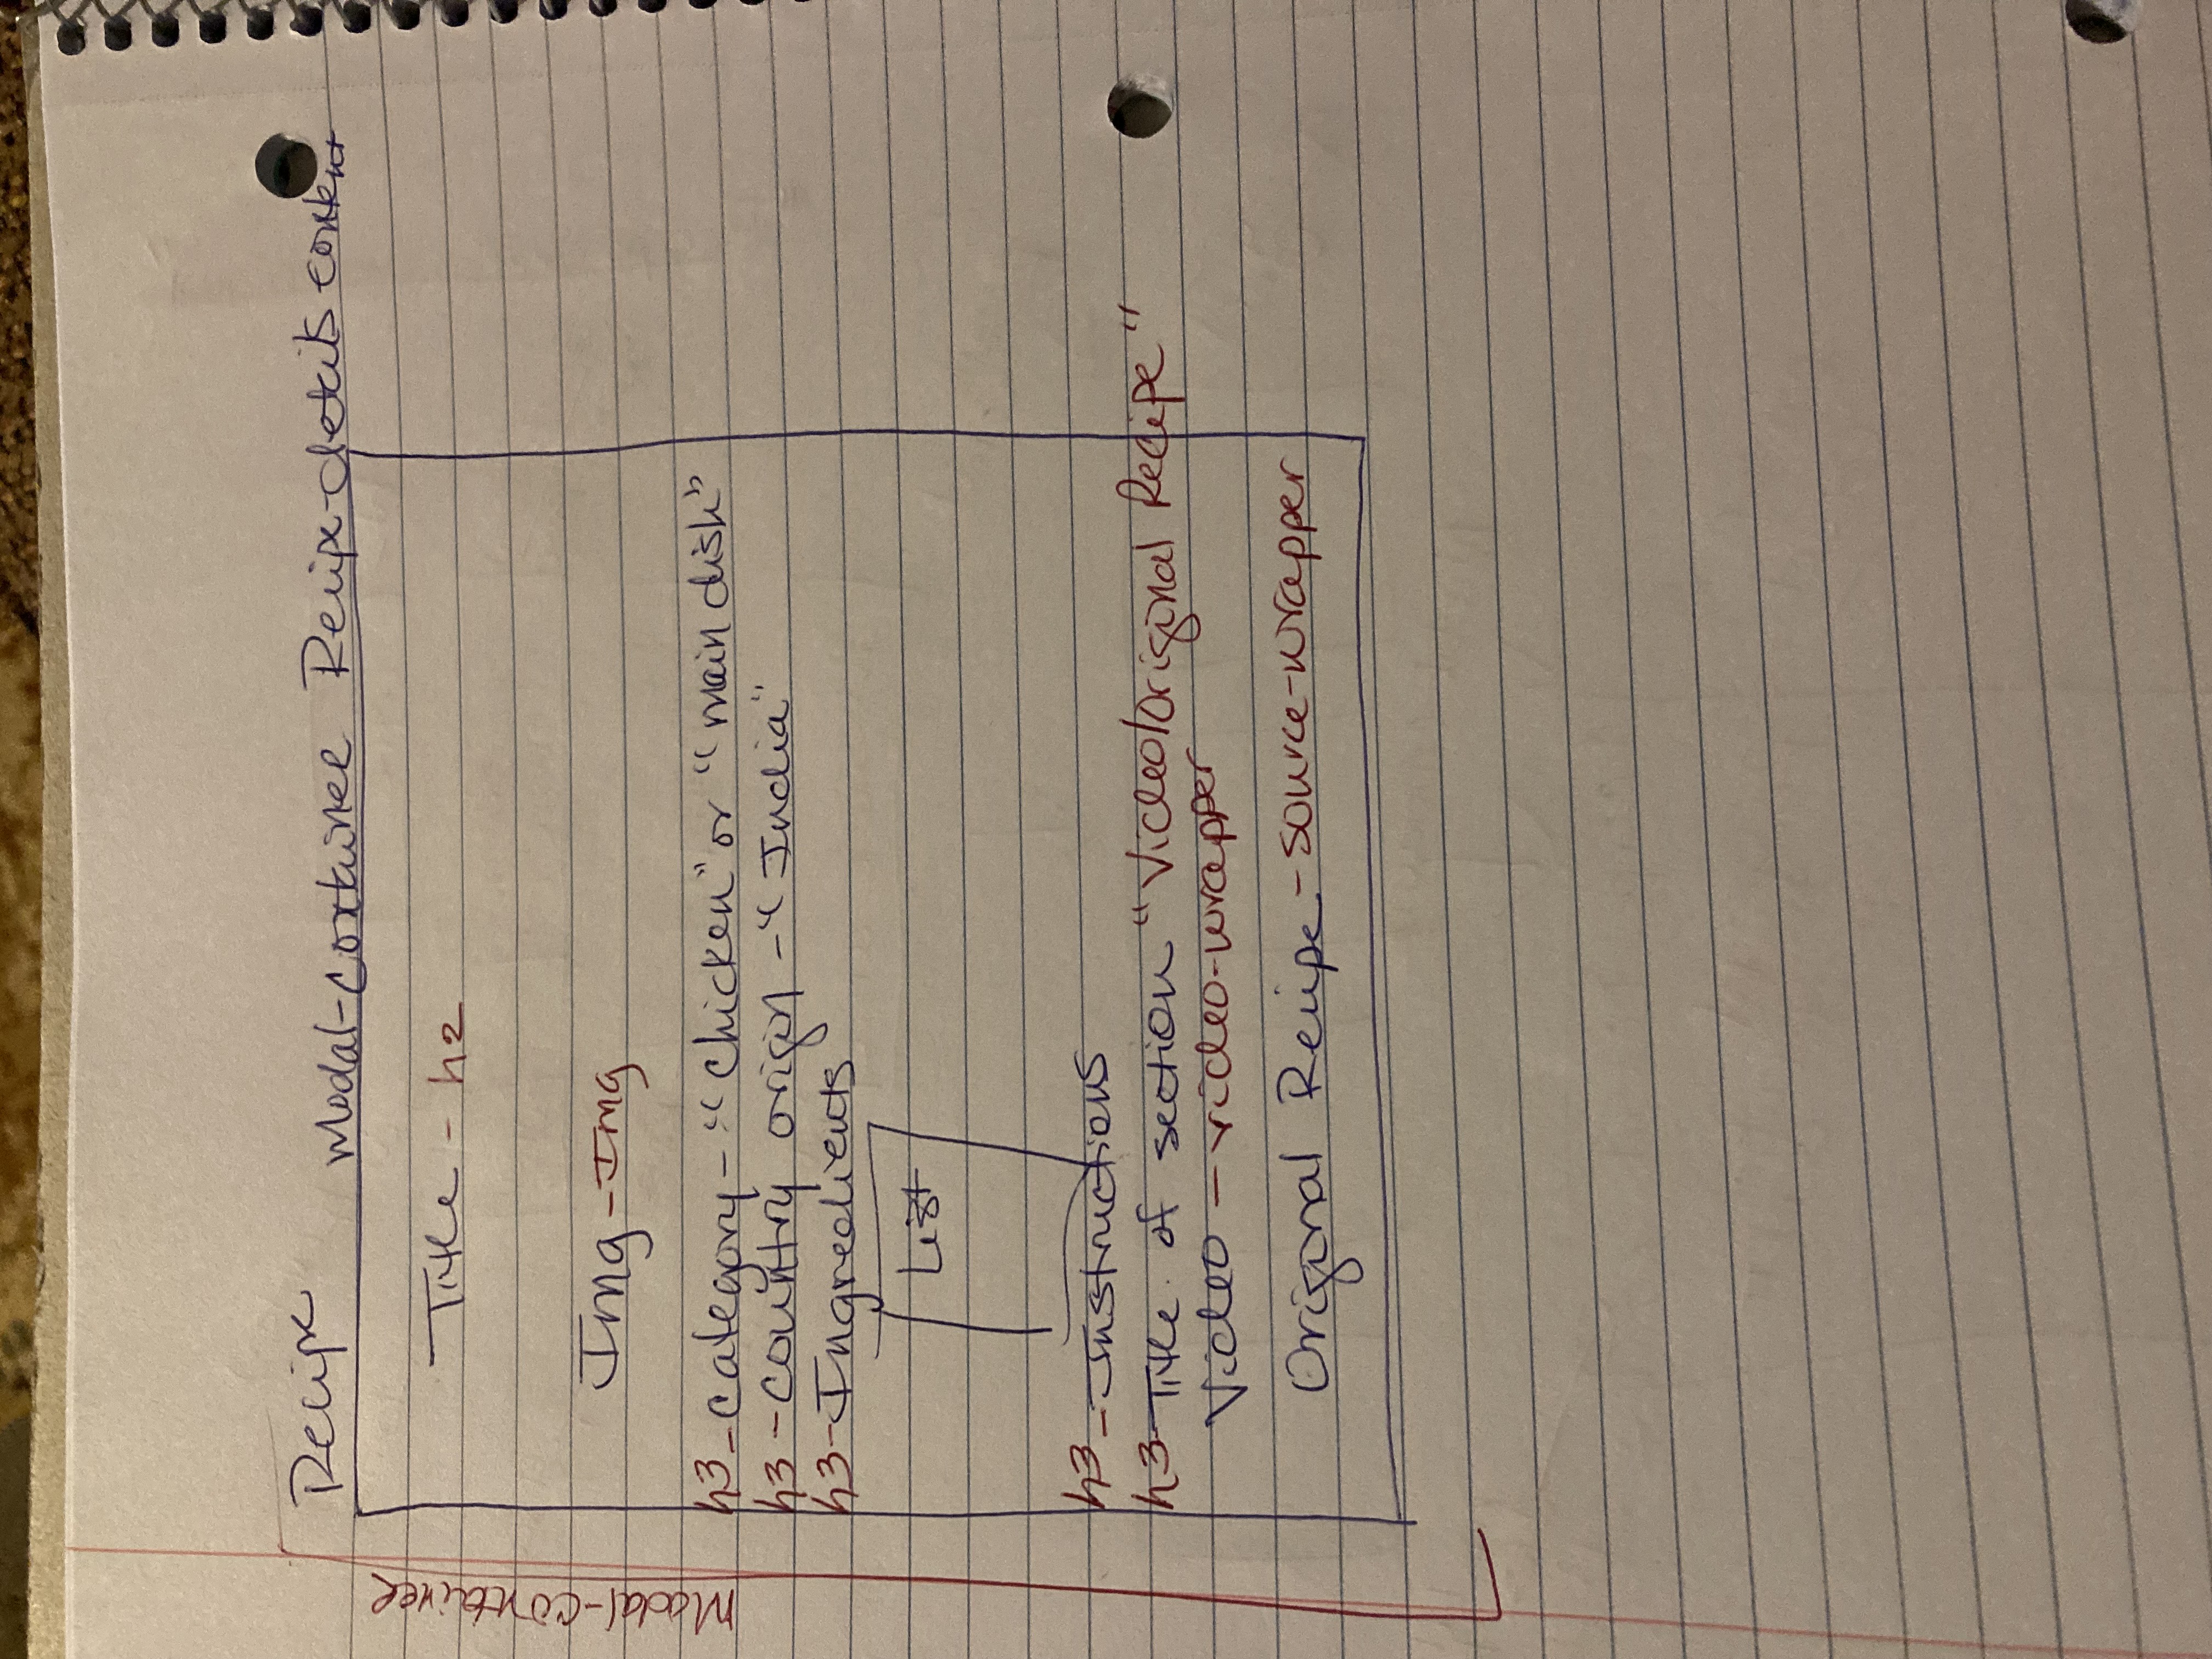 Recipe
Modal-container Recipe-details-content
Modal-container
Title - h2
Img - Img
h3 - category - "Chicken" or "main dish"
h3 - country origin - "India"
h3 - Ingredients
List
h3 - Instructions
h3 - Title of section "Video/Original Recipe"
Video - video-wrapper
Original Recipe - source-wrapper